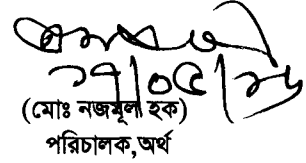 ২৭/০৫/২৮
(মোঃ নজমূল হক)
পরিচালক,অর্থ